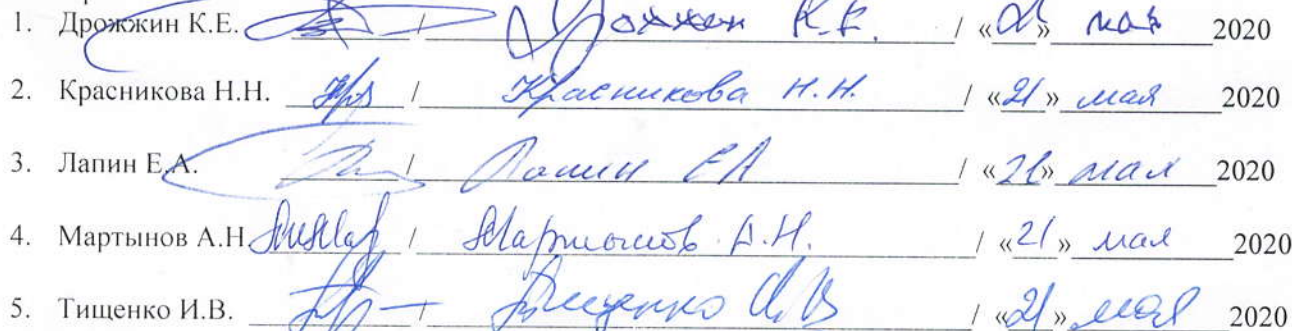 1. Дрожжин К.Е. / Дрожжин К.Е. / «21» мая 2020
2. Красникова Н.Н. / Красникова Н.Н. / «21» мая 2020
3. Лапин Е.А. / Лапин ЕА / «21» мая 2020
4. Мартынов А.Н. / Мартынов А.Н. / «21» мая 2020
5. Тищенко И.В. / Тищенко И.В / «21» мая 2020